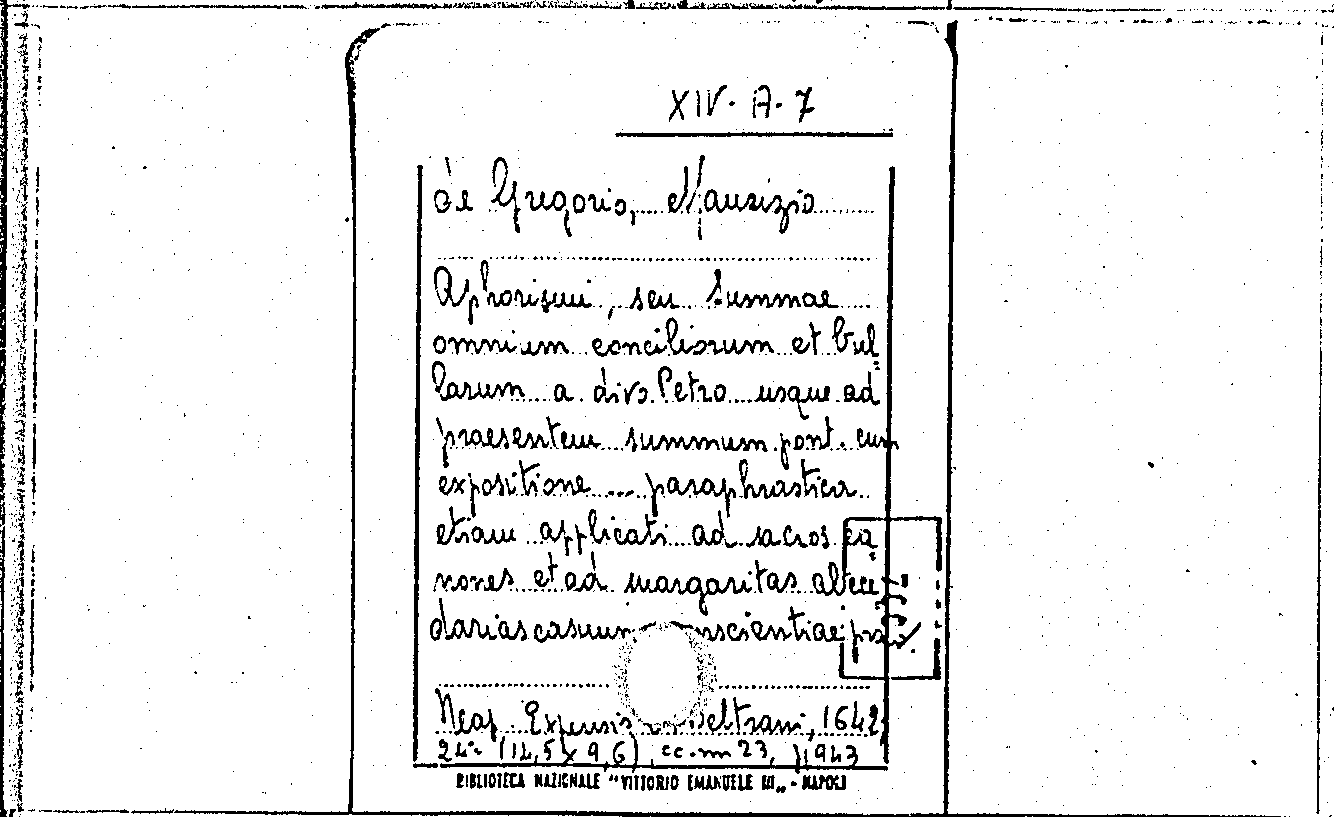 XIV. A. 7
de Gregorio, Maurizio
Aphorismi, seu Summae
omnium conciliorum et bul=
larum a divo Petro usque ad
praesentem summum pont. cum
expositione ... paraphrastica
etiam applicati ad sacros ca=
nones et ad margaritas abece
darias casuum conscientiae
Neap. Expensis Beltrani, 1642,
24° (14,5 x 9,6) cc. nn 23,
BIBLIOTECA NAZIONALE "VITTORIO EMANUELE III„ - NAPOLI